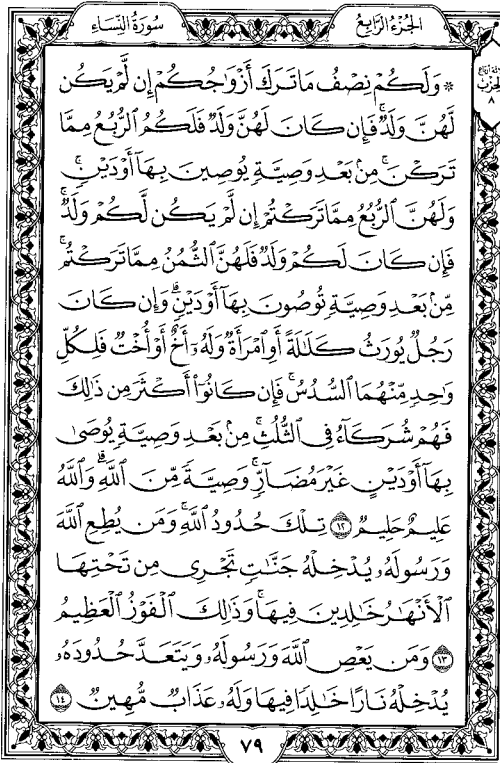 الجزء الرابع
سورة النساء
ربع الحزب ٨
۞ وَلَكُمْ نِصْفُ مَا تَرَكَ أَزْوَٰجُكُمْ إِن لَّمْ يَكُن
لَّهُنَّ وَلَدٌ ۚ فَإِن كَانَ لَهُنَّ وَلَدٌ فَلَكُمُ ٱلرُّبُعُ مِمَّا
تَرَكْنَ ۚ مِنۢ بَعْدِ وَصِيَّةٍ يُوصِينَ بِهَآ أَوْ دَيْنٍ ۚ
وَلَهُنَّ ٱلرُّبُعُ مِمَّا تَرَكْتُمْ إِن لَّمْ يَكُن لَّكُمْ وَلَدٌ ۚ
فَإِن كَانَ لَكُمْ وَلَدٌ فَلَهُنَّ ٱلثُّمُنُ مِمَّا تَرَكْتُم ۚ
مِّنۢ بَعْدِ وَصِيَّةٍ تُوصُونَ بِهَآ أَوْ دَيْنٍ ۗ وَإِن كَانَ
رَجُلٌ يُورَثُ كَلَٰلَةً أَوِ ٱمْرَأَةٌ وَلَهُۥٓ أَخٌ أَوْ أُخْتٌ فَلِكُلِّ
وَٰحِدٍ مِّنْهُمَا ٱلسُّدُسُ ۚ فَإِن كَانُوٓا۟ أَكْثَرَ مِن ذَٰلِكَ
فَهُمْ شُرَكَآءُ فِى ٱلثُّلُثِ ۚ مِنۢ بَعْدِ وَصِيَّةٍ يُوصَىٰ
بِهَآ أَوْ دَيْنٍ غَيْرَ مُضَآرٍّ ۚ وَصِيَّةً مِّنَ ٱللَّهِ ۗ وَٱللَّهُ
عَلِيمٌ حَلِيمٌ ١٢ تِلْكَ حُدُودُ ٱللَّهِ ۚ وَمَن يُطِعِ ٱللَّهَ
وَرَسُولَهُۥ يُدْخِلْهُ جَنَّٰتٍ تَجْرِى مِن تَحْتِهَا
ٱلْأَنْهَٰرُ خَٰلِدِينَ فِيهَا ۚ وَذَٰلِكَ ٱلْفَوْزُ ٱلْعَظِيمُ
١٣ وَمَن يَعْصِ ٱللَّهَ وَرَسُولَهُۥ وَيَتَعَدَّ حُدُودَهُۥ
يُدْخِلْهُ نَارًا خَٰلِدًا فِيهَا وَلَهُۥ عَذَابٌ مُّهِينٌ ١٤
٧٩